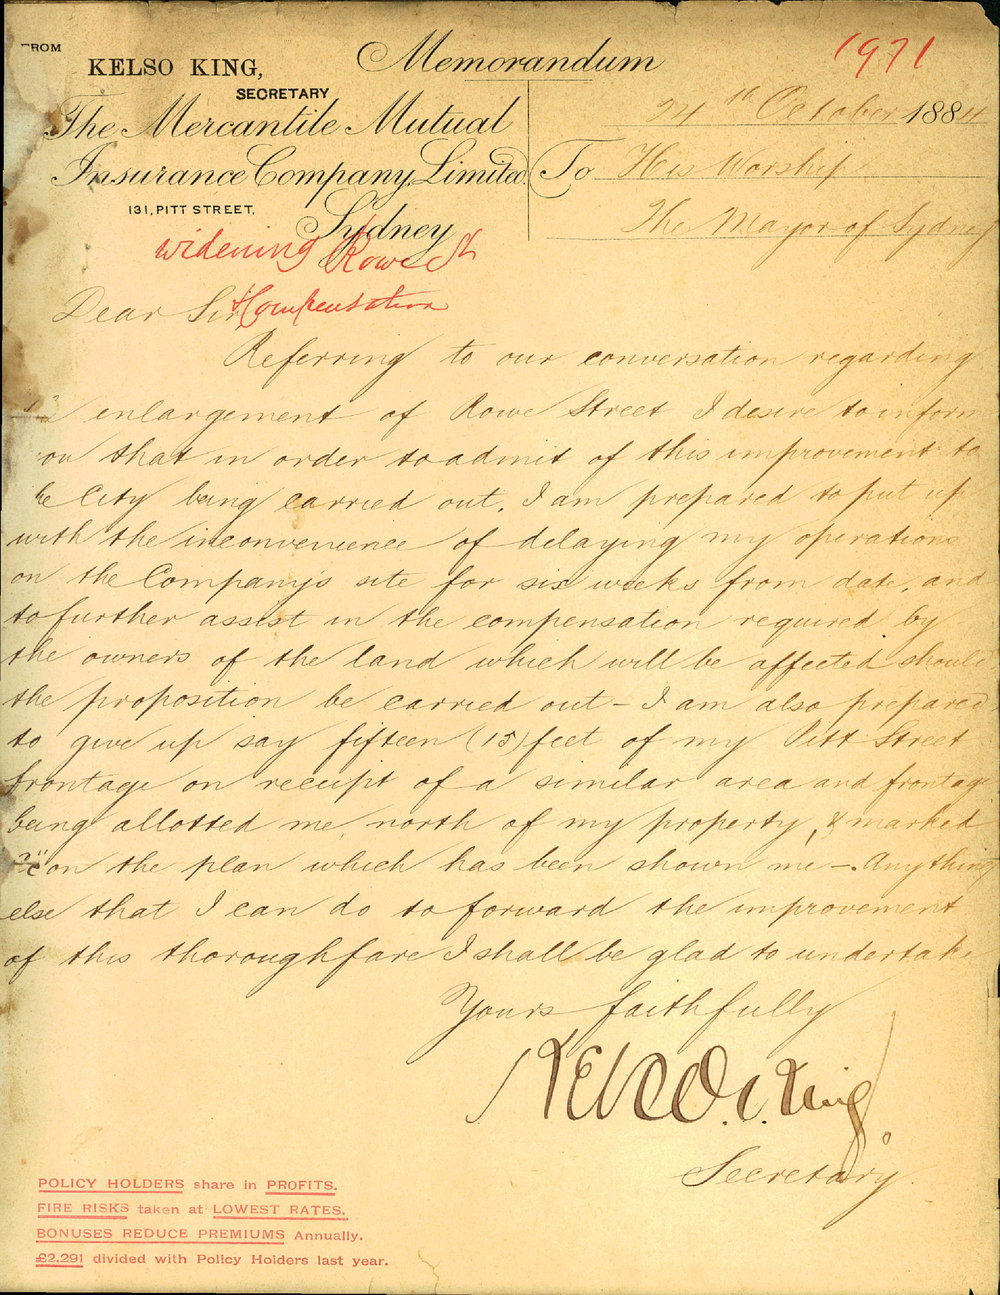 FROM
KELSO KING,
SECRETARY
The Mercantile Mutual
Insurance Company, Limited.
131, PITT STREET,
Sydney
Memorandum
1971
24th October 1884
To His Worship
The Mayor of Sydney
Widening Rowe St
Compensation
Dear Sir
Referring to our conversation regarding
enlargement of Rowe Street I desire to inform
you that in order to admit of this improvement to
the City being carried out, I am prepared to put up
with the inconvenience of delaying my operations
on the Company's site for six weeks from date, and
to further assist in the compensation required by
the owners of the land which will be affected should
the proposition be carried out - I am also prepared
to give up say fifteen (15) feet of my Pitt Street
frontage on receipt of a similar area and frontage
being allotted me, north of my property, & marked
"C" on the plan which has been shown me -. Anything
else that I can do to forward the improvement
of this thoroughfare I shall be glad to undertake
Yours faithfully
Kelso King
Secretary.
POLICY HOLDERS share in PROFITS.
FIRE RISKS taken at LOWEST RATES.
BONUSES REDUCE PREMIUMS Annually.
£2,291 divided with Policy Holders last year.